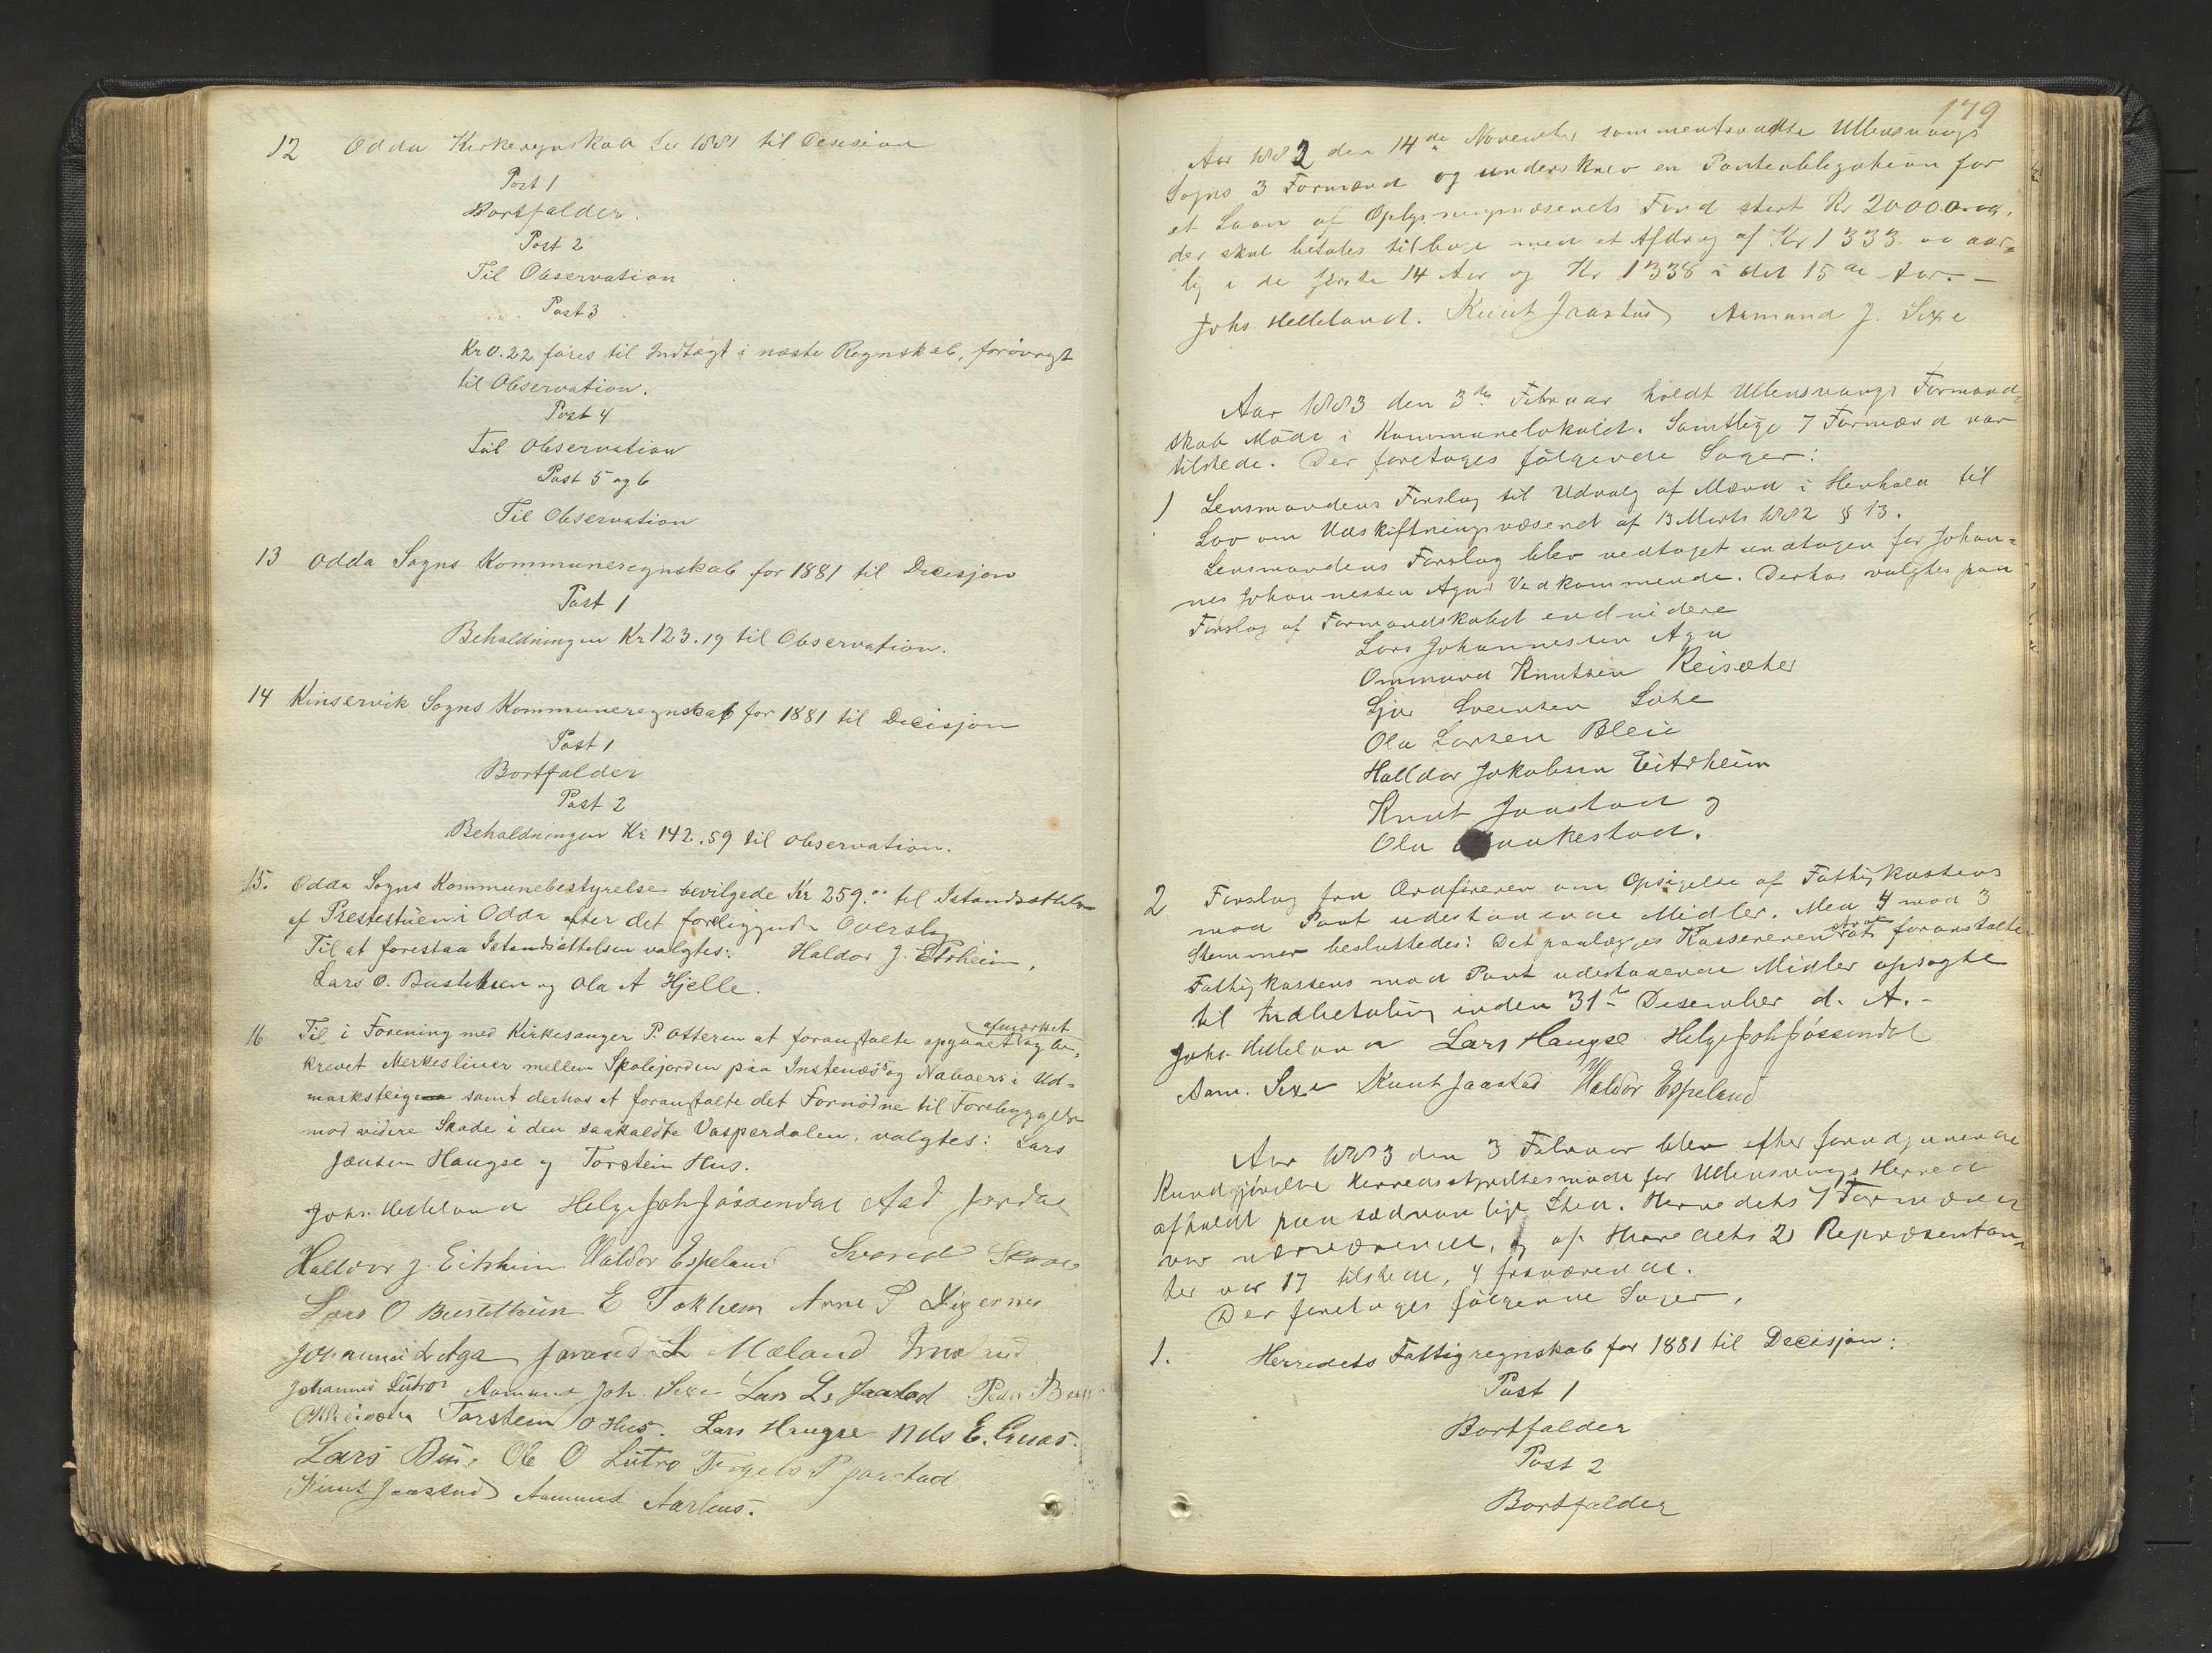 12 Odda Kirkeregnskab for 1881 til Desision
Post 1
Bortfalder.
Post 2
Til Observation
Post 3
Kr 0.22 føres til Indtægt i næste Regnskab, forövrigt
til Observation.
Post 4
Til Observation
Post 5 og 6
Til Observation
13 Odda Sogns Kommuneregnskab for 1881 til Decisjon
Post 1
Beholdningen Kr 123.19 til Observation.
14 Kinservik Sogns Kommuneregnskab for 1881 til Decisjon
Post 1
Bortfalder
Post 2
Beholdningen Kr 142.59 til observation.
15. Odda Sogns Kommunebestyrelse bevilgede Kr 259.00 til Istandsættelse
af Prestestuen i Odda efter det foreliggende Overslag
Til at forestaa Istandsættelsen valgtes: Haldor J. Eitrheim,
Lars O. Bustethun og Ola A Hjelle.
16 Til i Forening med Kirkesanger P. Otteren at foranstalte opgaaet afmærket og be-
krevet Merkesliner mellem Skolejorden paa Instenæs og Naboers i Ud-
marksteigen samt derhos at foranstalte det Fornødne til Forebyggelse
mod videre Skade i den saakaldte Vasperdalen, valgtes: Lars
Jansen Haugse og Torstein Hus.
Johs. Helleland Helge Joh Jösendal Aad Jordal
Halldor J. Eitrheim Haldor Espeland Svend Skaae
Lars O Bustethun E Tokheim Arne P Digernes
Johannes L Aga Jørand L Mæland
Johannes Lutro Aamund Joh. Sexe Lars L. Jaastad Peder
Torstein O Hus. Lars Haugse Nils E.
Lars Ole O Lutro Torgels P Jaastad
Knut Jaastad Aamund Aarhus.
179
Aar 1882 den 14de November sammentraadte Ullensvangs
Sogns 3 Formænd og underskrev en Panteobligation for
et Laan af Oplysningsvæsenets Fond stort Kr 20000.00.
der skal betales tilbage med et Afdrag af Kr 1333.00 aar-
lig i de første 14 Aar og Kr 1338 i det 15de Aar.—
Johs Helleland. Knut Jaastad Aamund J. Sexe
Aar 1883 den 3de Februar holdt Ullensvangs Formand-
skab Møde i Kommunelokalet. Samtlige 7 Formænd var
tilstede. Der foretoges fölgende Sager:
1 Lensmandens Forslag til Udvalg af Mænd i Henhold til
Lov om Udskiftningsvæsenet af 13 Marts 1882 § 13.
Lensmandens Forslag blev vedtaget undtagen for Johan-
nes Johannessen Agas Vedkommende. Derhos valgtes paa
Forslag af Formandskabet endvidere
Lars Johannessen Aga
Ommund Knutsen Reisæter
Sjur Sveinsen Sexe
Ola Larsen Bleie
Halldor Jakobsen Eitrheim
Knut Jaastad og
Ola
2 Forslag fra Ordføreren om Opsigelse af Fattigkassens
mod Pant udestaaende Midler. Med 4 mod 3
Stemmer besluttedes: Det paalægges Kassereren strax at foranstalte
Fattigkassens mod Pant udestaaende Midler opsagte
til Indbetaling inden 31te Desember d. A.-
Johs. Helleland Lars Haugse Helge Joh Jösendal
Aam. Sexe Knut Jaastad Haldor Espeland
Aar 1883 den 3 Februar blev efter forudgaaende
Kundgjörelse Herredsstyrelsesmöde for Ullensvangs Herred
afholdt paa sædvanlige Sted. Herredets 7 Formænd
var nærværende, og af Herredets 21 Repræsentan-
ter var 17 tilstede, 4 fraværende.
Der foretoges fölgende Sager,
1. Herredets Fattigregnskab for 1881 til Decisjon:
Post 1
Bortfalder
Post 2
Bortfalder